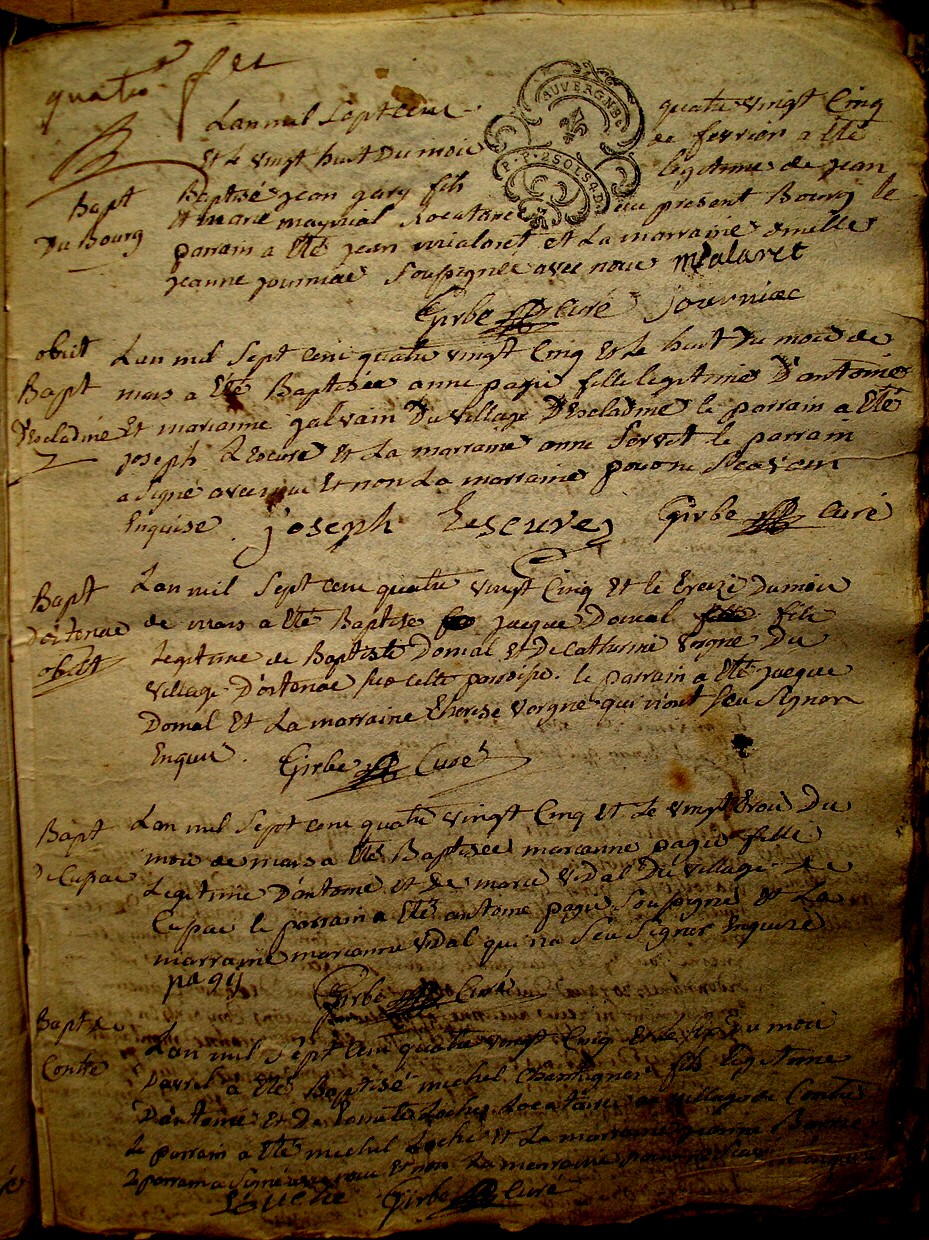 quatre fev
Lan mil Sept cent quatre vingt Cinq
AUVERGNE
P.P. 2 SOLS 4 D.
Et Le vingt huit Du mois de fevrier a Eté
Bapt
Du Bourg
Baptisé jean gary fils legitime de jean
Et marie maynial Locataire au présent Bourg le
parrain a Eté jean mialaret et La marraine
jeanne journiac Soussignée avec nous mialaret
Girbe Curé journiac
obiit
Bapt
D'Escladine
Lan mil Sept cent quatre vingt Cinq et Le huit Du mois de
mars a Eté Baptisée anne pagis fille legitime D'antoine
Et marianne galvain Du village D'Escladine le parrain a Eté
joseph Lescure Et La marraine anne Servet le parrain
a Signé avec nous Et non La marraine pour ne Scavoir
Enquise. joseph Lescure Girbe Curé
Bapt
D'ostenac
obiit
Lan mil Sept cent quatre vingt Cinq Et le treize Du mois
de mars a Eté Baptisé jacque Domal fils
Legitime de Baptiste Domal et De Catherine Vergne Du
village D'ostenac sur cette paroisse. le parrain a Eté jacque
Domal Et La marraine therese Vergne qui n'ont Seu Signer
Enquis. Girbe Curé
Bapt
De Cupac
Lan mil Sept cent quatre vingt Cinq Et Le vingt trois Du
mois de mars a Eté Baptisée marianne pagis fille
Legitime D'antoine et de marie Vidal Du village de
Cupac le parrain a Eté antoine pagis Soussigné et La
marraine marianne Vidal qui n'a Seu Signer Enquise
pagis
Girbe Curé
Bapt de
Contre
Lan mil Sept cent quatre vingt Cinq Et Le Six Du mois
Davril a Eté Baptisé michel Chantegner fils legitime
D'antoine Et De Loche Locataire au village de Contre
Le parrain a Eté michel Loche Et La marraine jeanne
Le parrain a Signé avec nous Et non La marraine pour ne Scavoir
Girbe Curé